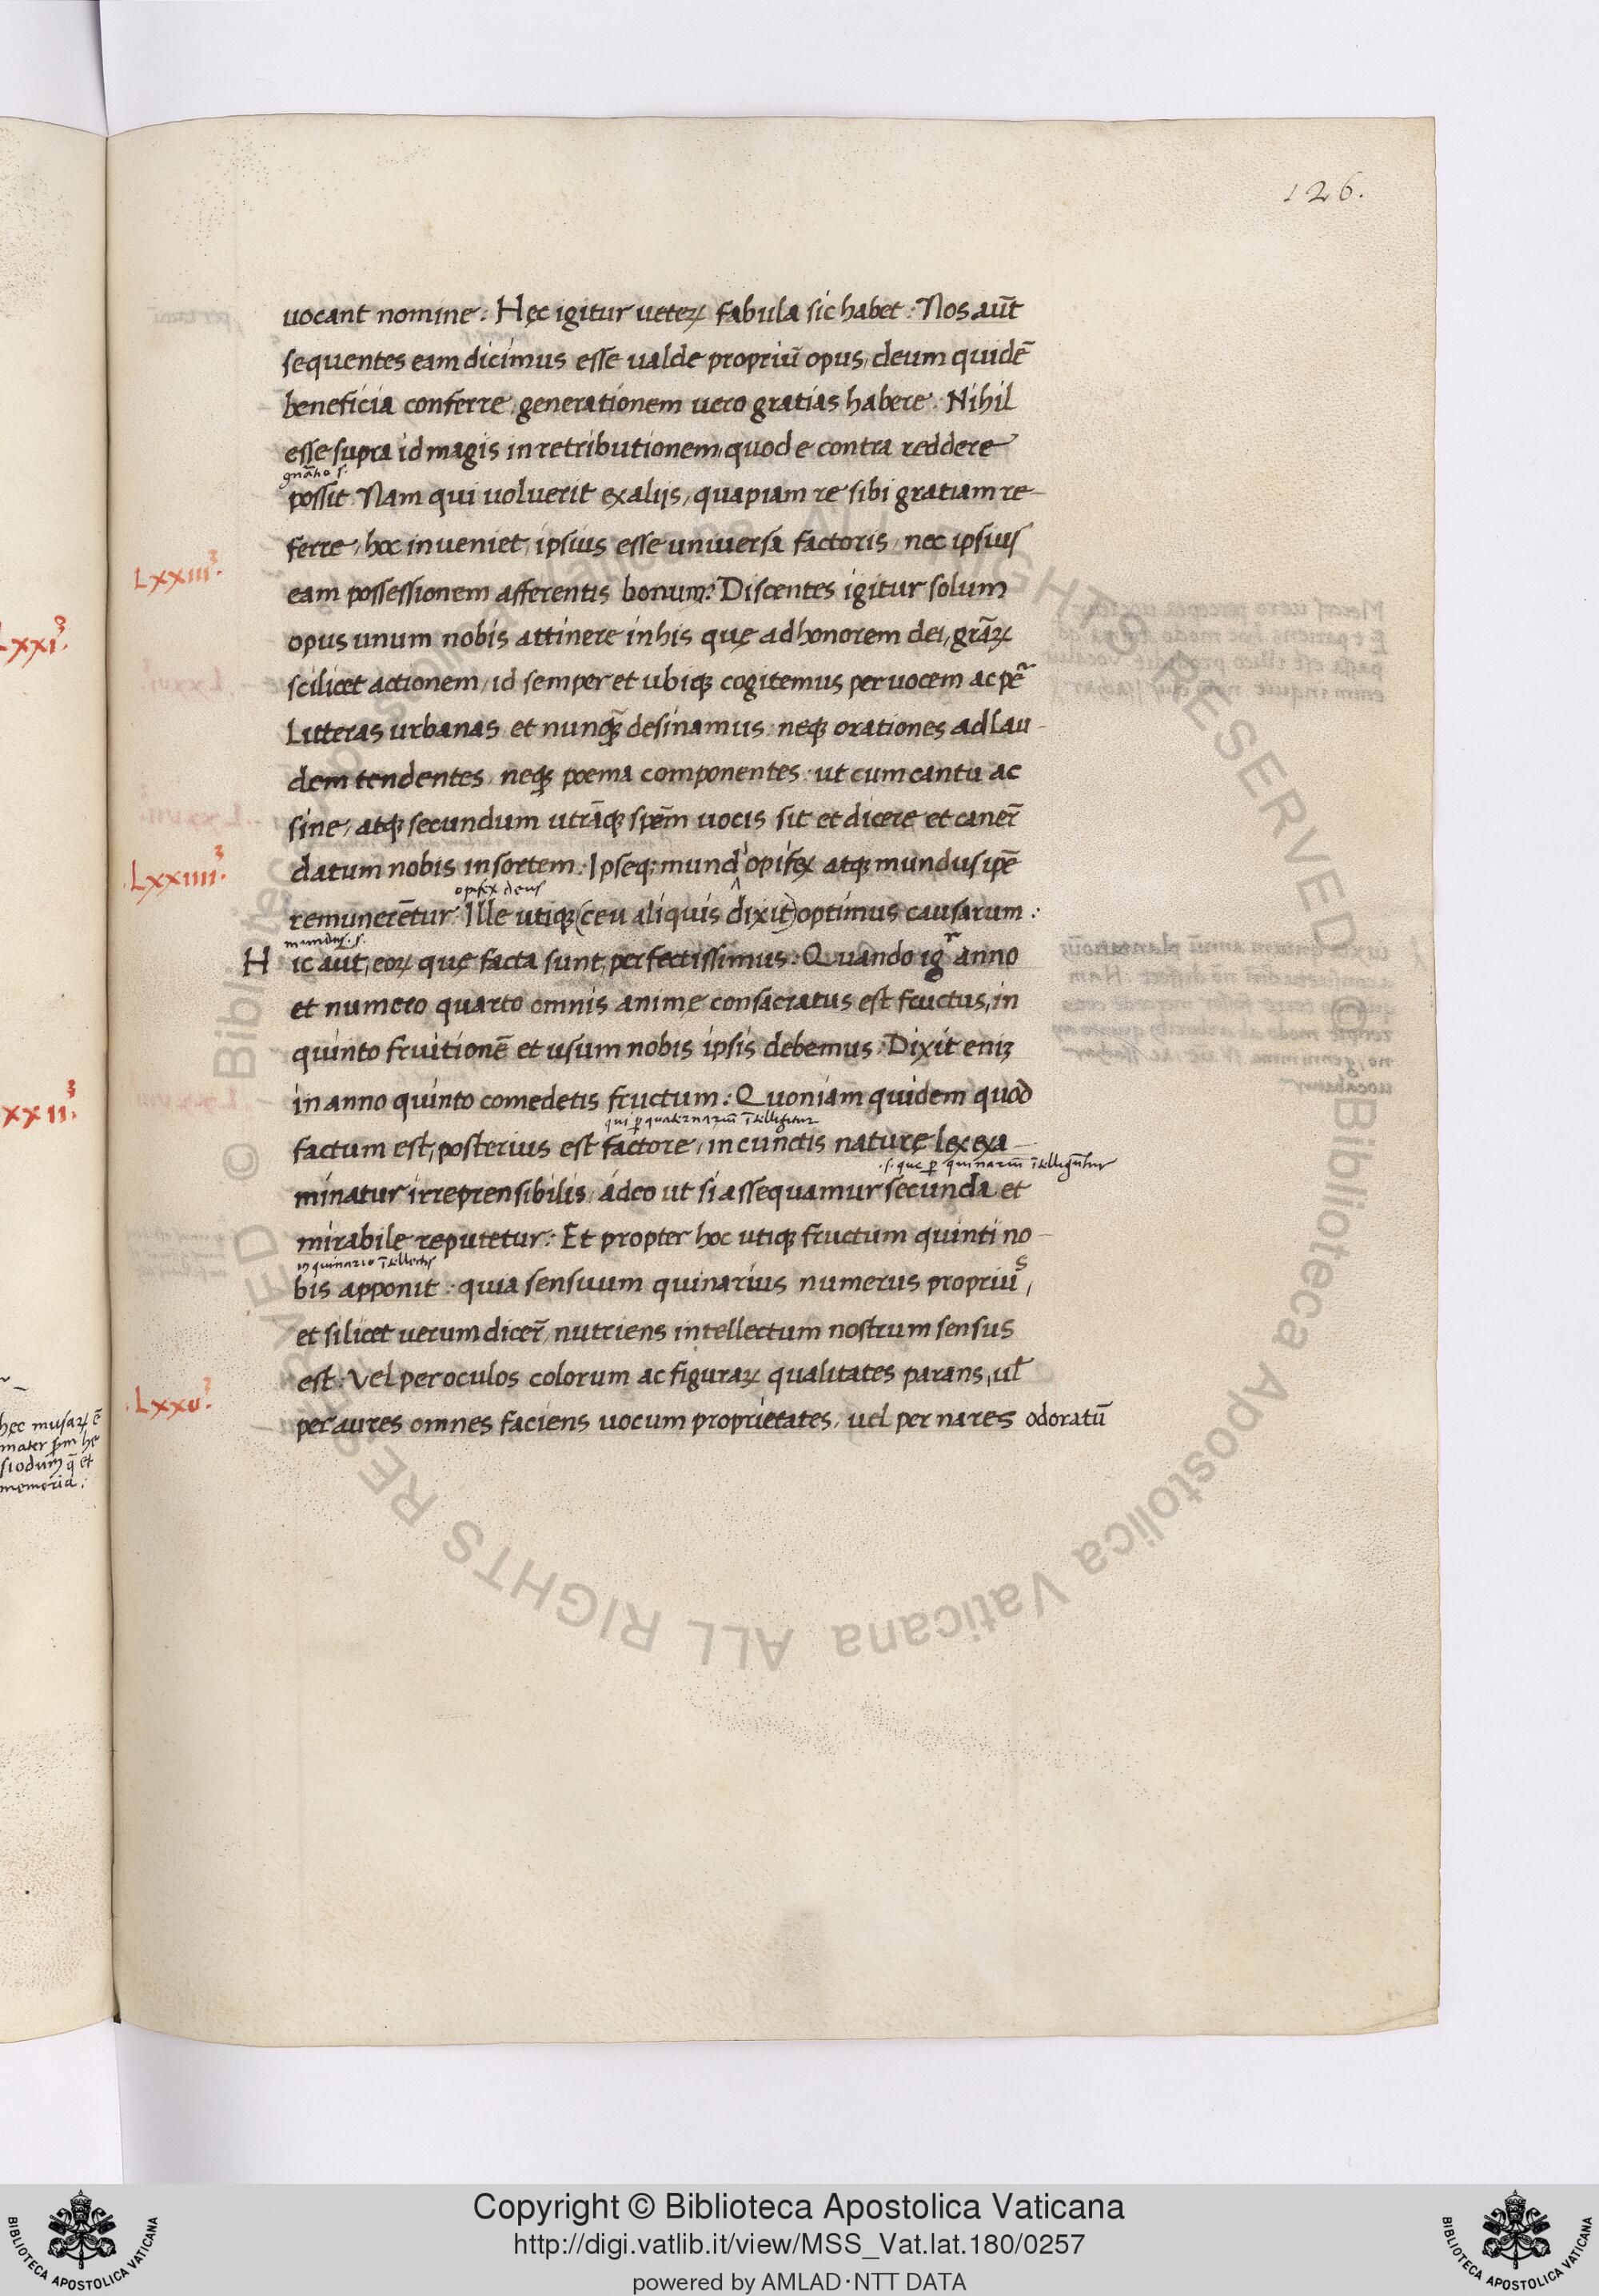 126.
uocant nomine: Hęc igitur ueteꝝ fabula sic habet: Nos aut̄
sequentes eam dicimus esse ualde propriū opus, deum quidē
beneficia conferre, generationem uero gratias habere. Nihil
esse supra id magis in retributionem, quod e contra reddere
possit. Nam qui uoluerit ex alijs, quapiam re sibi gratiam re-
ferre, hoc inueniet, ipsius esse uniuersa factoris, nec ipsius
Lxxiii
eam possessionem afferentis bonum? Discentes igitur solum
Lxxi
opus unum nobis attinere in his quę ad honorem dei, grāꝝ
scilicet actionem, id semper et ubiqꝫ cogitemus per uocem ac pẽ
Litteras urbanas et nunqꝫ̄ desinamus: neqꝫ orationes ad lau-
dem tendentes, neqꝫ poema componentes: ut cum cantu ac
sine, atqꝫ secundum utrāqꝫ spēm uocis sit et dicere et caner̄
Lxxiiii
datum nobis in sortem. Ipseqꝫ mundi opifex atqꝫ mundus ipē
opifex deus
remunerētur. Ille utiqꝫ (ceu aliquis dixit) optimus causarum:
mundus .s.
Hic aut̄, eoꝝ quę facta sunt, perfectissimus: Quando igʳ anno
et numero quarto omnis animę consacratus est fructus, in
quinto fruitionē et usum nobis ipsis debemus. Dixit enīꝫ
xxii
in anno quinto comedetis fructum: Quoniam quidem quod
qui ꝑ quaternariū ītelligitur
factum est, posterius est factore, in cunctis naturę lex exa-
.s. que ꝑ quinariū ītelligūtur
minatur irreprensibilis, ádeo ut si assequamur secunda et
mirabile reputetur: Et propter hoc utiqꝫ fructum quinti no-
in quinario ītellectis
bis apponit: quia sensuum quinarius numerus proprius,
et si licet uerum dicer̄, nutriens intellectum nostrum sensus
est. Vel per oculos colorum ac figuraꝝ qualitates parans, ul̄
Lxxv
per aures omnes faciens uocum proprietates, uel per nares odoratū
hęc musaꝝ ē
mater
memoria:
Copyright © Biblioteca Apostolica Vaticana
http://digi.vatlib.it/view/MSS_Vat.lat.180/0257
powered by AMLAD·NTT DATA
BIBLIOTECA APOSTOLICA VATICANA
BIBLIOTECA APOSTOLICA VATICANA
© Biblioteca Apostolica Vaticana ALL RIGHTS RESERVED
© Biblioteca Apostolica Vaticana ALL RIGHTS RESERVED